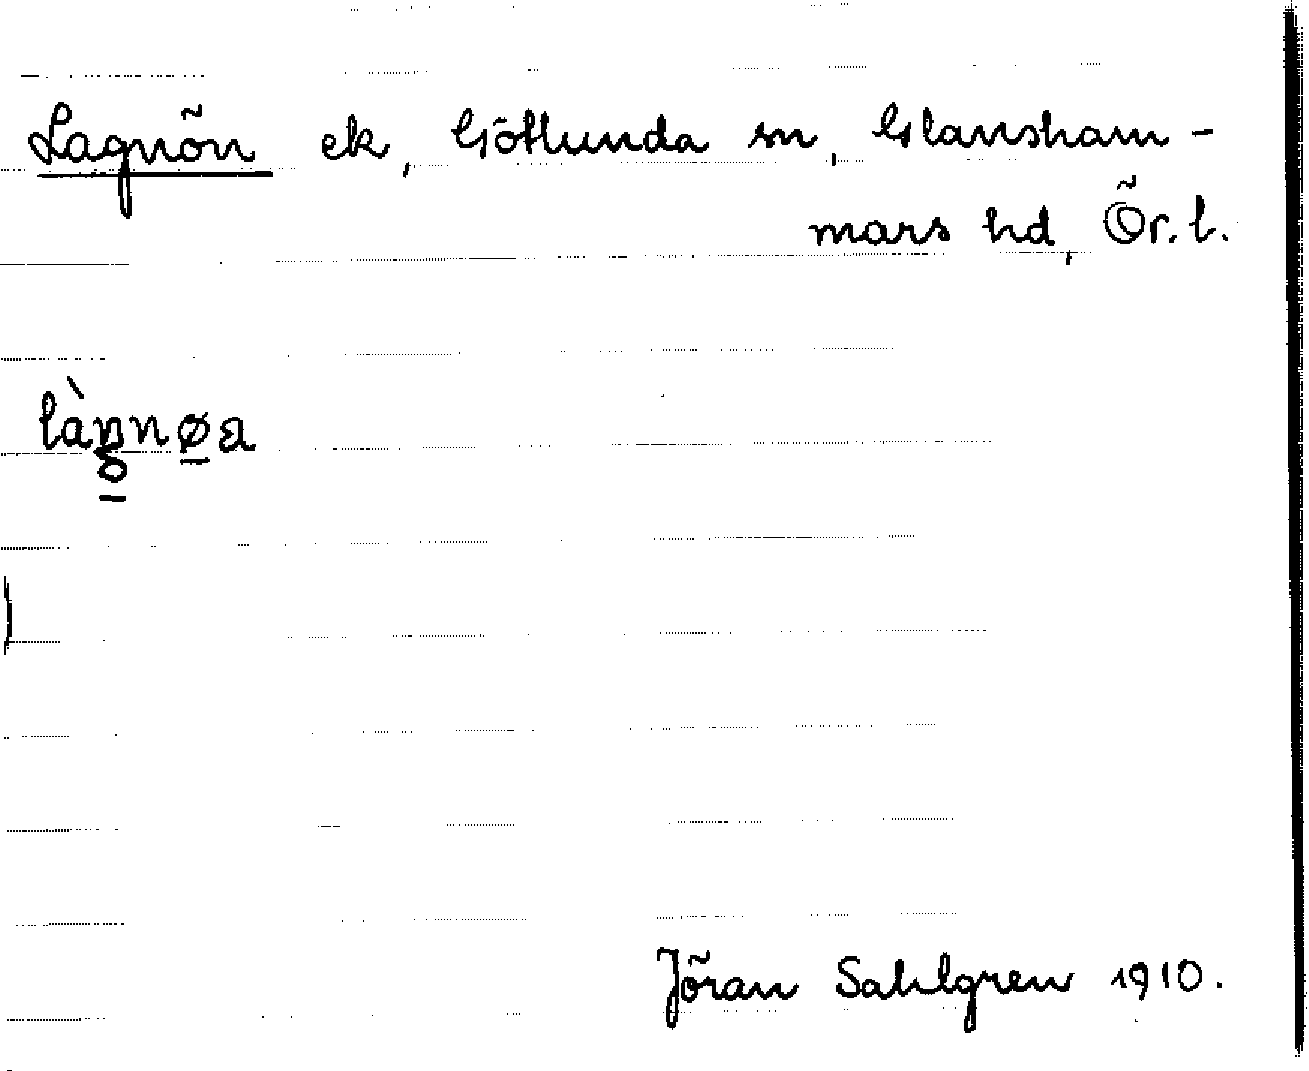 Lagnön ek, Götlunda sn, Glansham-
mars hd, Ör. l.
Jöran Sahlgren 1910.